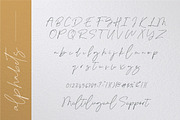 alphabets
A B C D E F G H I J K L M
N O P Q R S T U V W X Y Z
a b c d e f g h i j k l m n o p
q r s t u v w x y z
Multilingual Support